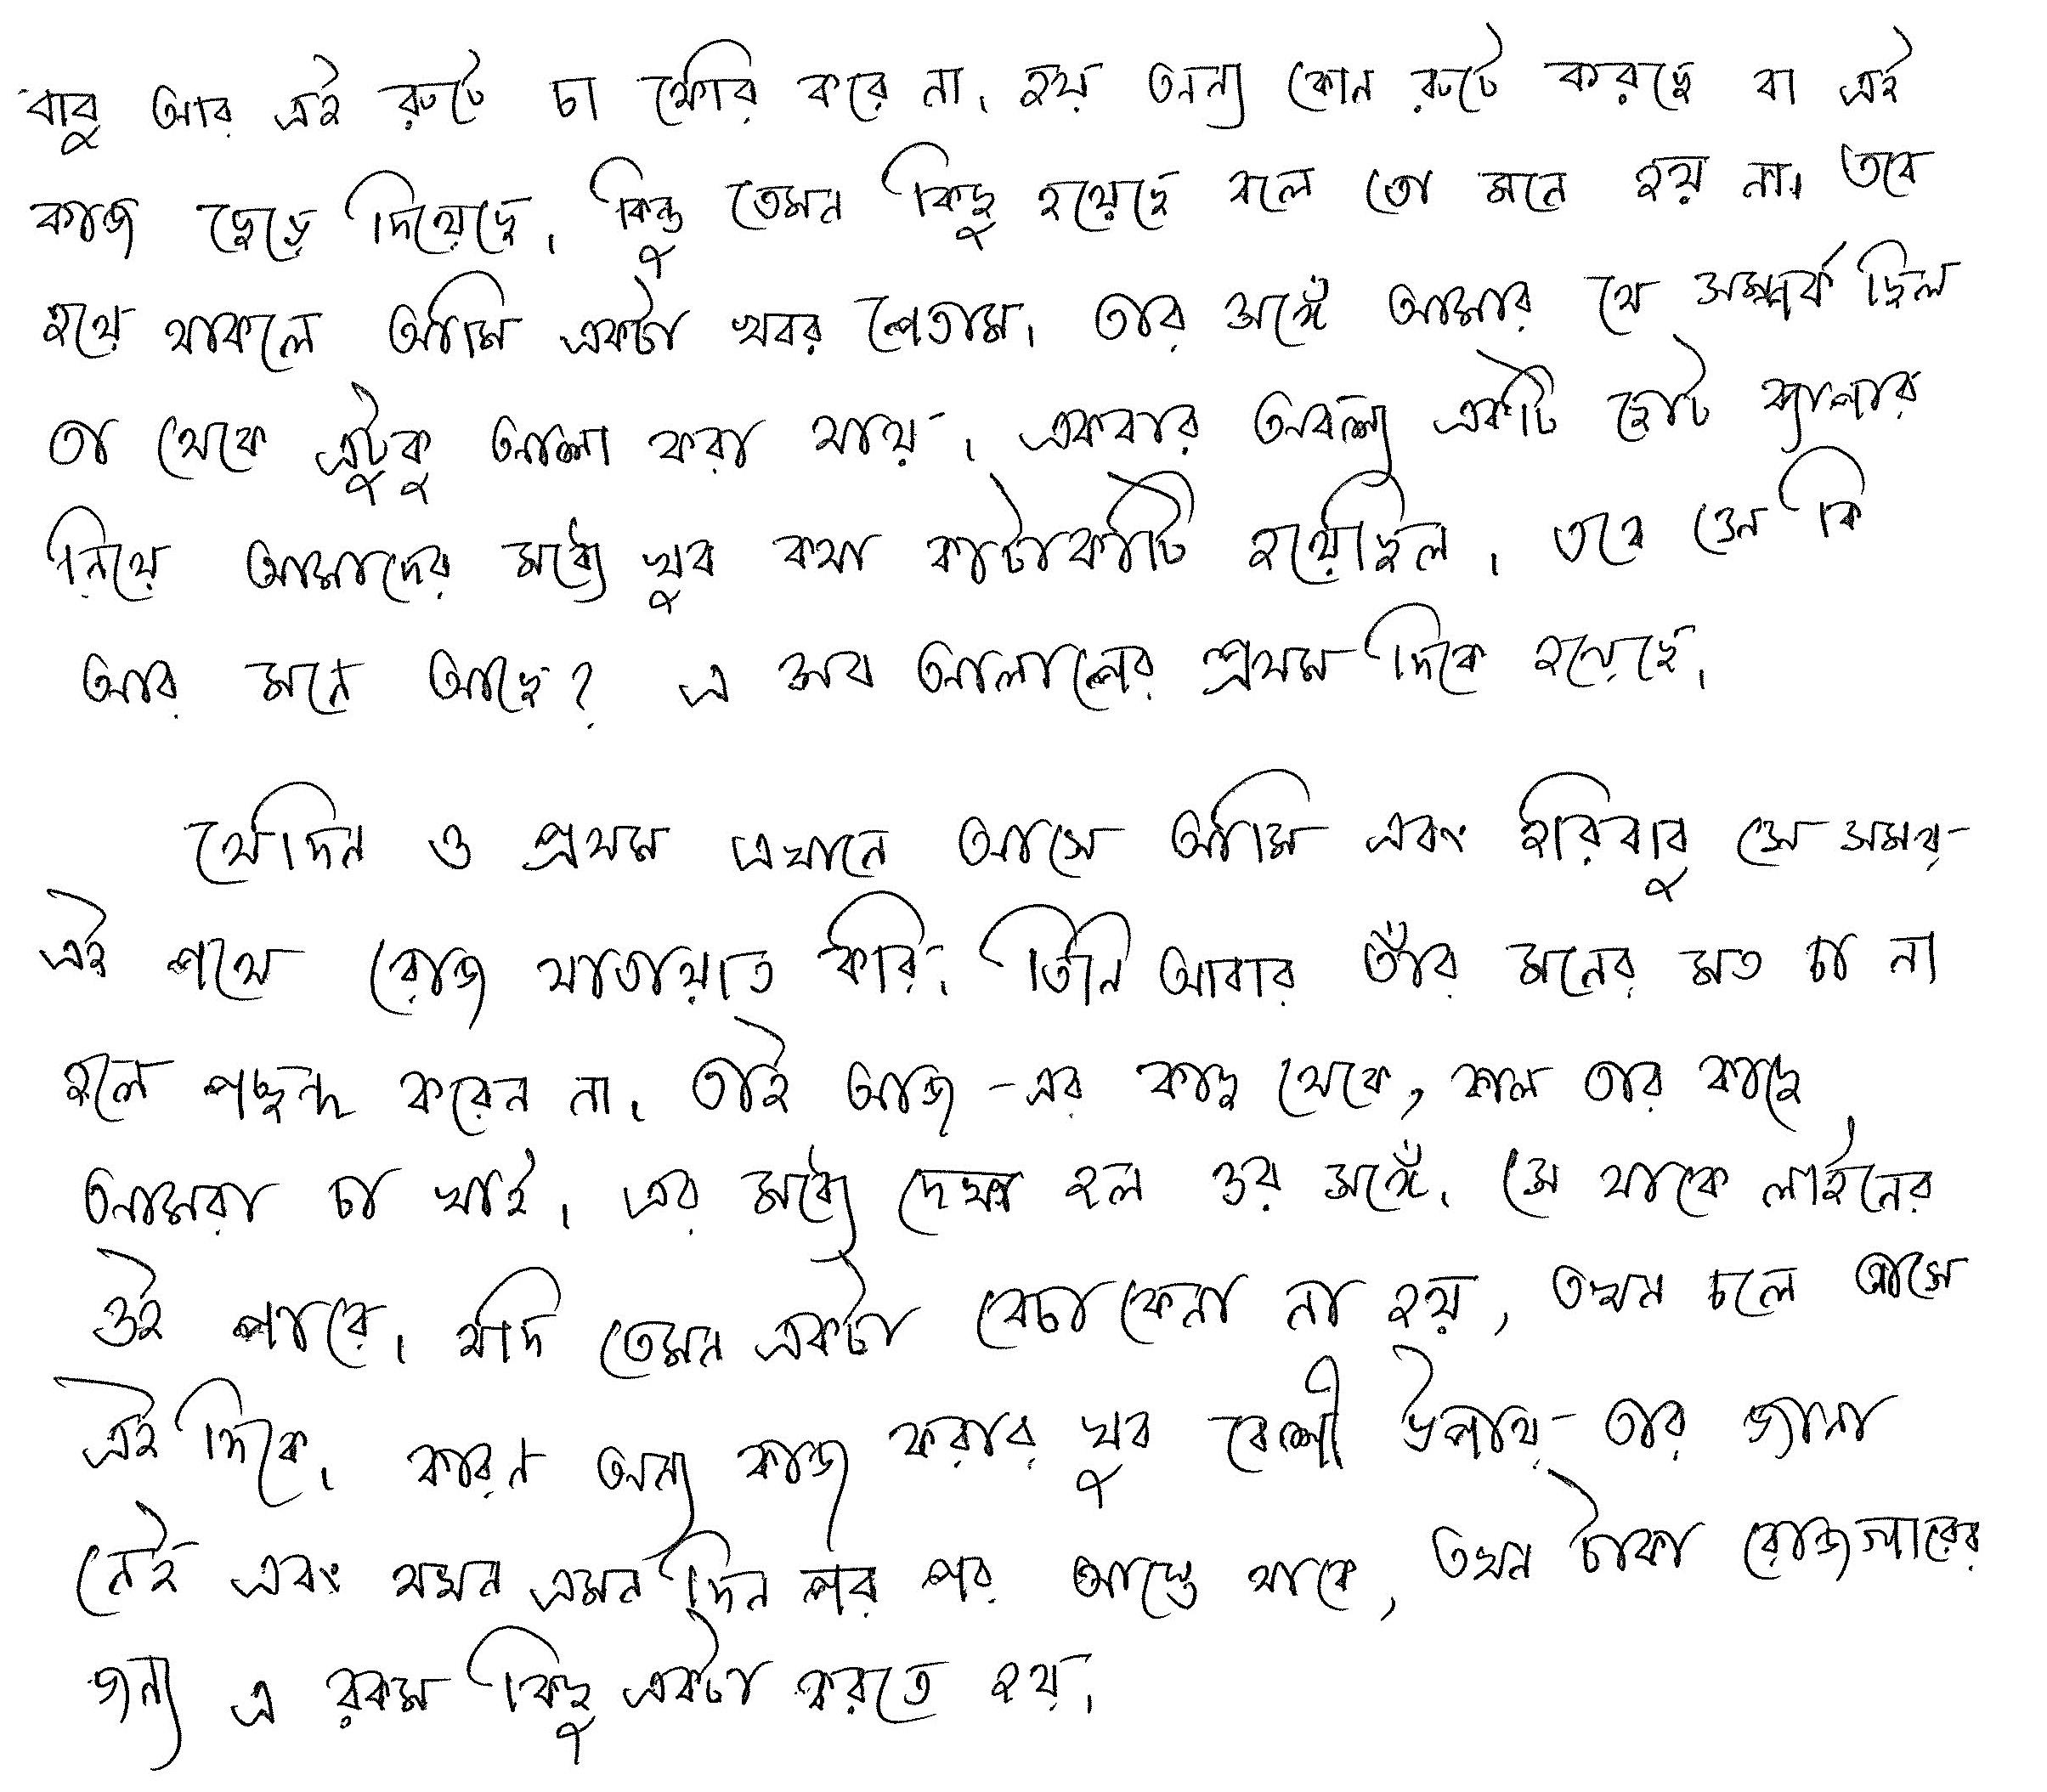 বাবু আর এই রুটে চা ফেরি করে না। হয় অন্য কোন রুটে করছে বা এই
কাজ ছেড়ে দিয়েছে। কিন্তু তেমন কিছু হয়েছে বলে তো মনে হয় না। তবে
হয়ে থাকলে আমি একটা খবর পেতাম। তার সঙ্গে আমার যে সম্পর্ক ছিল
তা থেকে এটুকু আশা করা যায়। একবার অবশ্য একটি ছোট ব্যাপার
নিয়ে আমাদের মধ্যে খুব কথা কাটাকাটি হয়েছিল। তবে সে কি
আর মনে আছে? এ সব আলাপের প্রথম দিকে হয়েছে।
যেদিন ও প্রথম এখানে আসে আমি এবং হরিবাবু সে সময়
এই পথে রোজ যাতায়াত করি। তিনি আবার তাঁর মনের মত চা না
হলে পছন্দ করেন না। তাই আজ-এর কাছ থেকে, কাল তার কাছে
আমরা চা খাই। এর মধ্যে দেখা হল ওর সঙ্গে। সে থাকে লাইনের
ওই পারে। যদি তেমন একটা বেচাকেনা না হয়, তখন চলে আসে
এই দিকে। কারন অন্য কাজ করার খুব বেশী উপায় তার জানা
নেই এবং যখন এমন দিন পর পর আস্তে থাকে, তখন টাকা রোজগারের
জন্য এ রকম কিছু একটা করতে হয়।